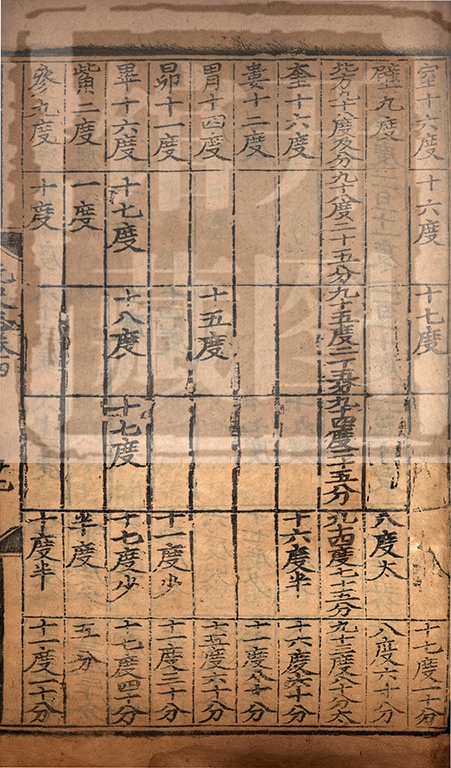 室十六度 十六度 十七度 十七度一十分
壁九度 八度太 八度六十分
北方九十八度及分 九十八度二十五分 九十五度二十五分 九十四度二十五分 九十四度七十五分 九十三度八十分太
奎十六度 十六度半 十六度六十分
婁十二度 十一度八十分
胃十四度 十五度 十五度六十分
昴十一度 十一度少 十一度三十分
畢十六度 十七度 十八度 十七度 十七度少 十七度四十分
觜二度 一度 半度 五分
參九度 十度 十度半 十一度一十分